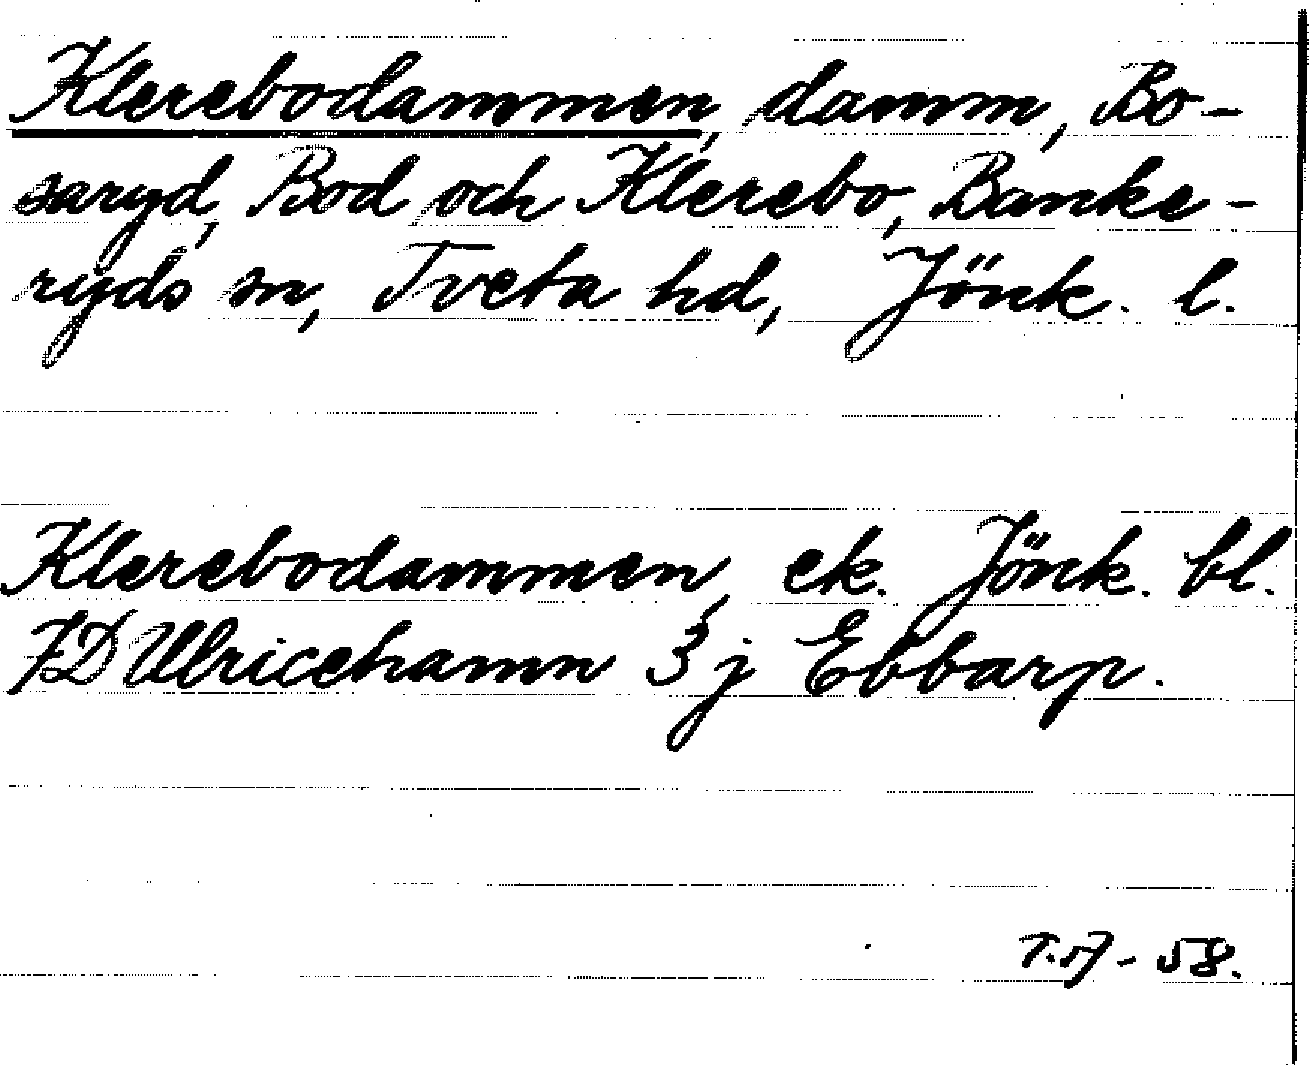 Klerebodammen, damm, Bo-
saryd, Bod och Klerebo, Banke-
ryds sn, Tveta hd, Jönk. l.
Klerebodammen, ek. Jönk. bl.
7D Ulricehamn 3j Ebbarp.
58.